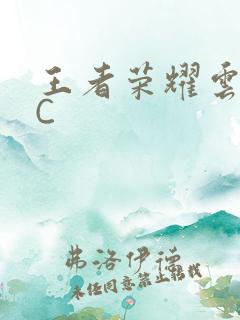 王者荣耀雲
C
弗洛伊德
未经同意禁止转载